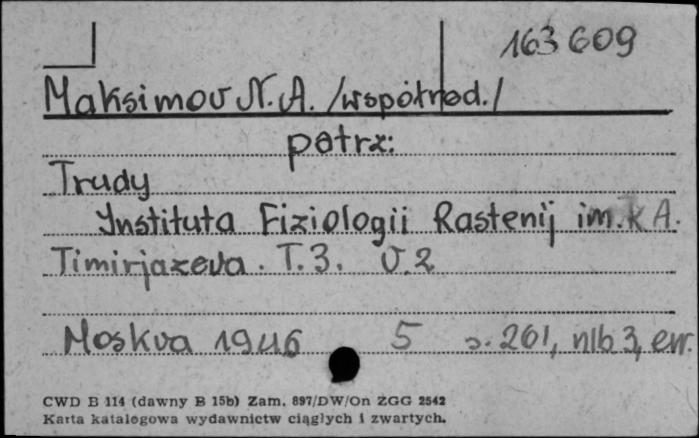 163 609
Maksimov N. A. /współred./
patrz:
Trudy
Instituta Fiziologii Rastenij im. K A.
Timirjazeva. T. 3. V. 2
Moskva 1946 5 s. 261, nlb 3, err.
CWD B 114 (dawny B 15b) Zam. 897/DW/On ZGG 2542
Karta katalogowa wydawnictw ciągłych i zwartych.